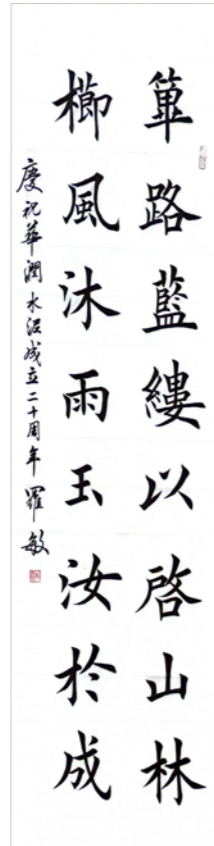 篳路藍縷以啓山林
櫛風沐雨玉汝於成
慶祝華潤水泥成立二十周年 羅敏